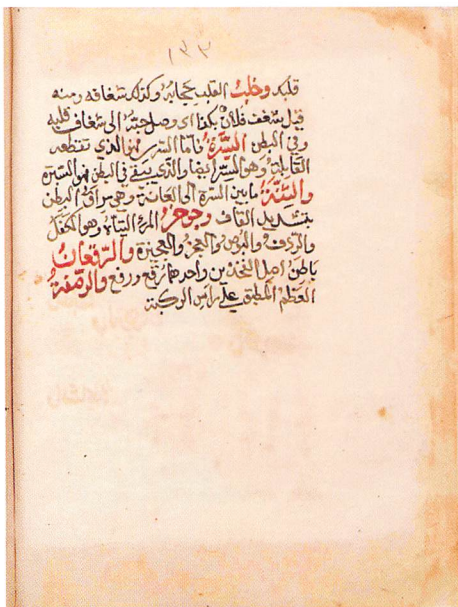 ١٣٣
قلبه وخلب القلب حجابه وكذلك شغافه ومنه
قيل شغف فلان بكذا اي وصل حبه الى شغاف قلبه
وفي البطن السرة فاما السر فهو الذي تقطعه
القابلة وهو السر ايضا والذي يبقى في البطن فهو السرة
والثنة ما بين السرة الى العانة وهي مراق البطن
بتشديد القاف وهو الكفل
والردف والبوص والعجز والعجيزة والرفغان
باطن اصل الفخذين واحدهما رفغ ورفغ
العظم المطبق على راس الركبة